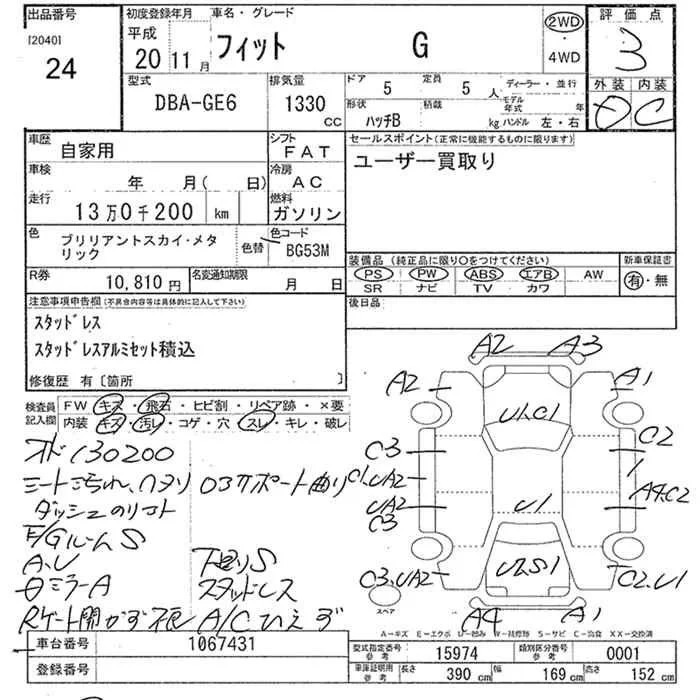 出品番号 初度登録年月 車名・グレード 評価点
[2040] 平成
24 20 11月 フィット G 2WD・4WD 3
型式 排気量 ドア 5 定員 5人 ディーラー・並行 外装 内装
DBA-GE6 1330cc 形状 ハッチB 積載 kg モデル年式 年 ハンドル 左・右 D C
車歴 自家用 シフト FAT セールスポイント(正常に機能するものに限ります)
車検 年 月( 日) 冷房 AC ユーザー買取り
走行 13万0千200 km 燃料 ガソリン
色 ブリリアントスカイ・メタリック 色替 色コード BG53M
装備品 (純正品に限り○をつけてください) 新車保証書
PS PW ABS エアB AW 有・無
SR ナビ TV カワ
R券 10,810円 名変通知期限 月 日
後日品
注意事項申告欄(不具合内容等は具体的に記入して下さい)
スタッドレス
スタッドレスアルミセット積込
修復歴 有〔箇所 〕
検査員記入欄 FW キズ・飛石・ヒビ割・リペア跡・×要
内装 キズ・汚レ・コゲ・穴・スレ・キレ・破レ
オド130200
シートこうれ、ハヌリ ロアサポート曲り
ダッシュのりコト
F/GルームS
A.U 下廻りS
ミラーA スタッドレス
Rゲート開かず A/Cひえず
A2 A3
A2 A1
U1.C1
C3 C2
C1.UA2
UA2 U1 A4.C2
C3
C3.UA2 U2.S1 C2.U1
スペア
A4 A1
A－キズ E－エクボ U－凹み W－補修跡 S－サビ C－腐食 XX－交換済
車台番号 1067431 型式指定番号 参考 15974 類別区分番号 参考 0001
登録番号 車庫証明用 参考 長さ 390cm 幅 169cm 高さ 152cm